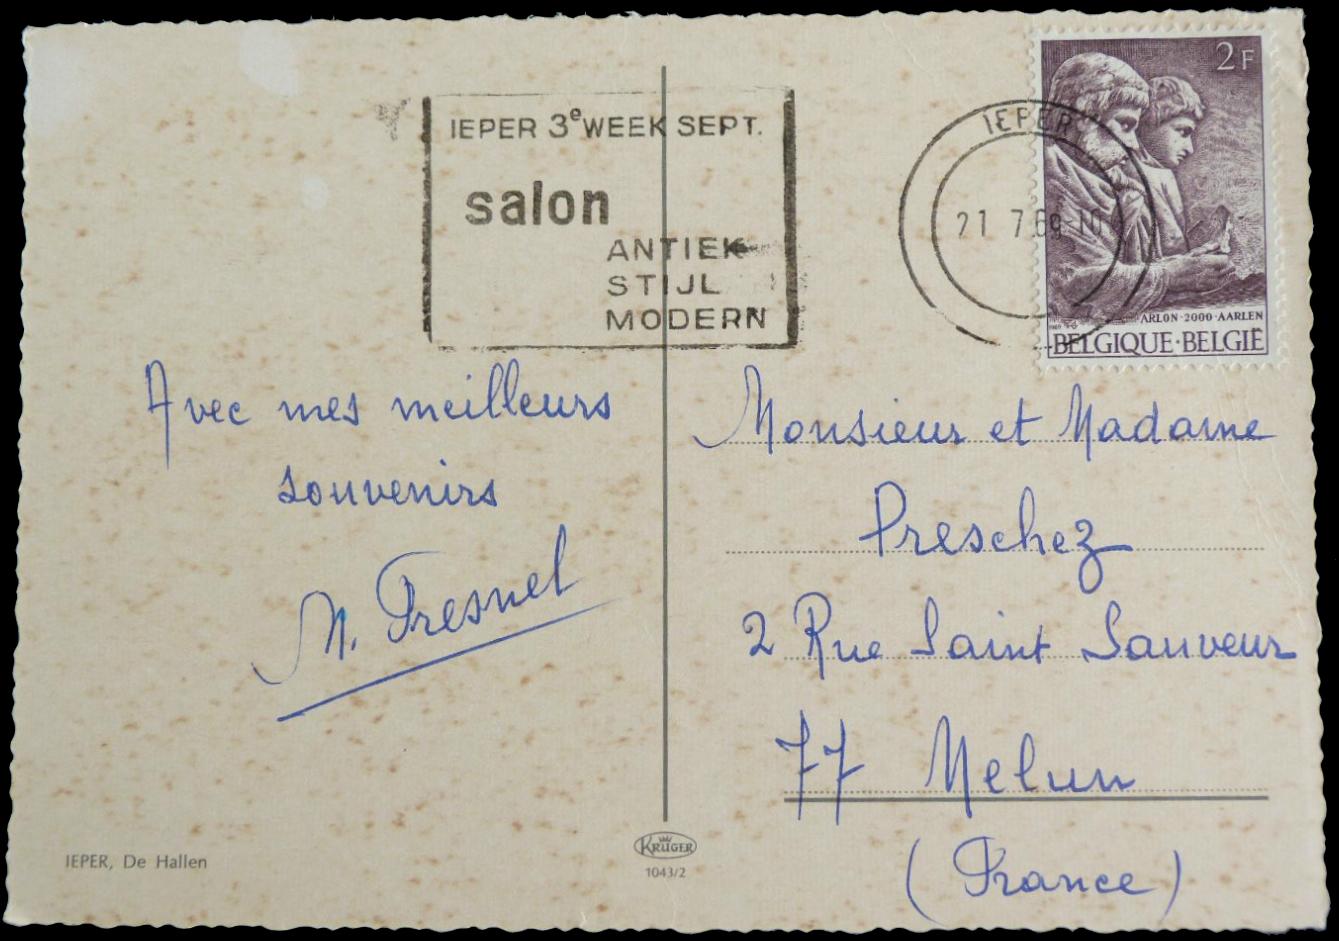 IEPER 3e WEEK SEPT.
salon
ANTIEK
STIJL
MODERN
IEPER
21 7.69-10
2 F
ARLON·2000·AARLEN
BELGIQUE·BELGIË
Avec mes meilleurs
souvenirs
Fresnel
Monsieur et Madame
Preschez
2 Rue Saint Sauveur
77 Melun
(France)
IEPER, De Hallen
KRÜGER
1043/2